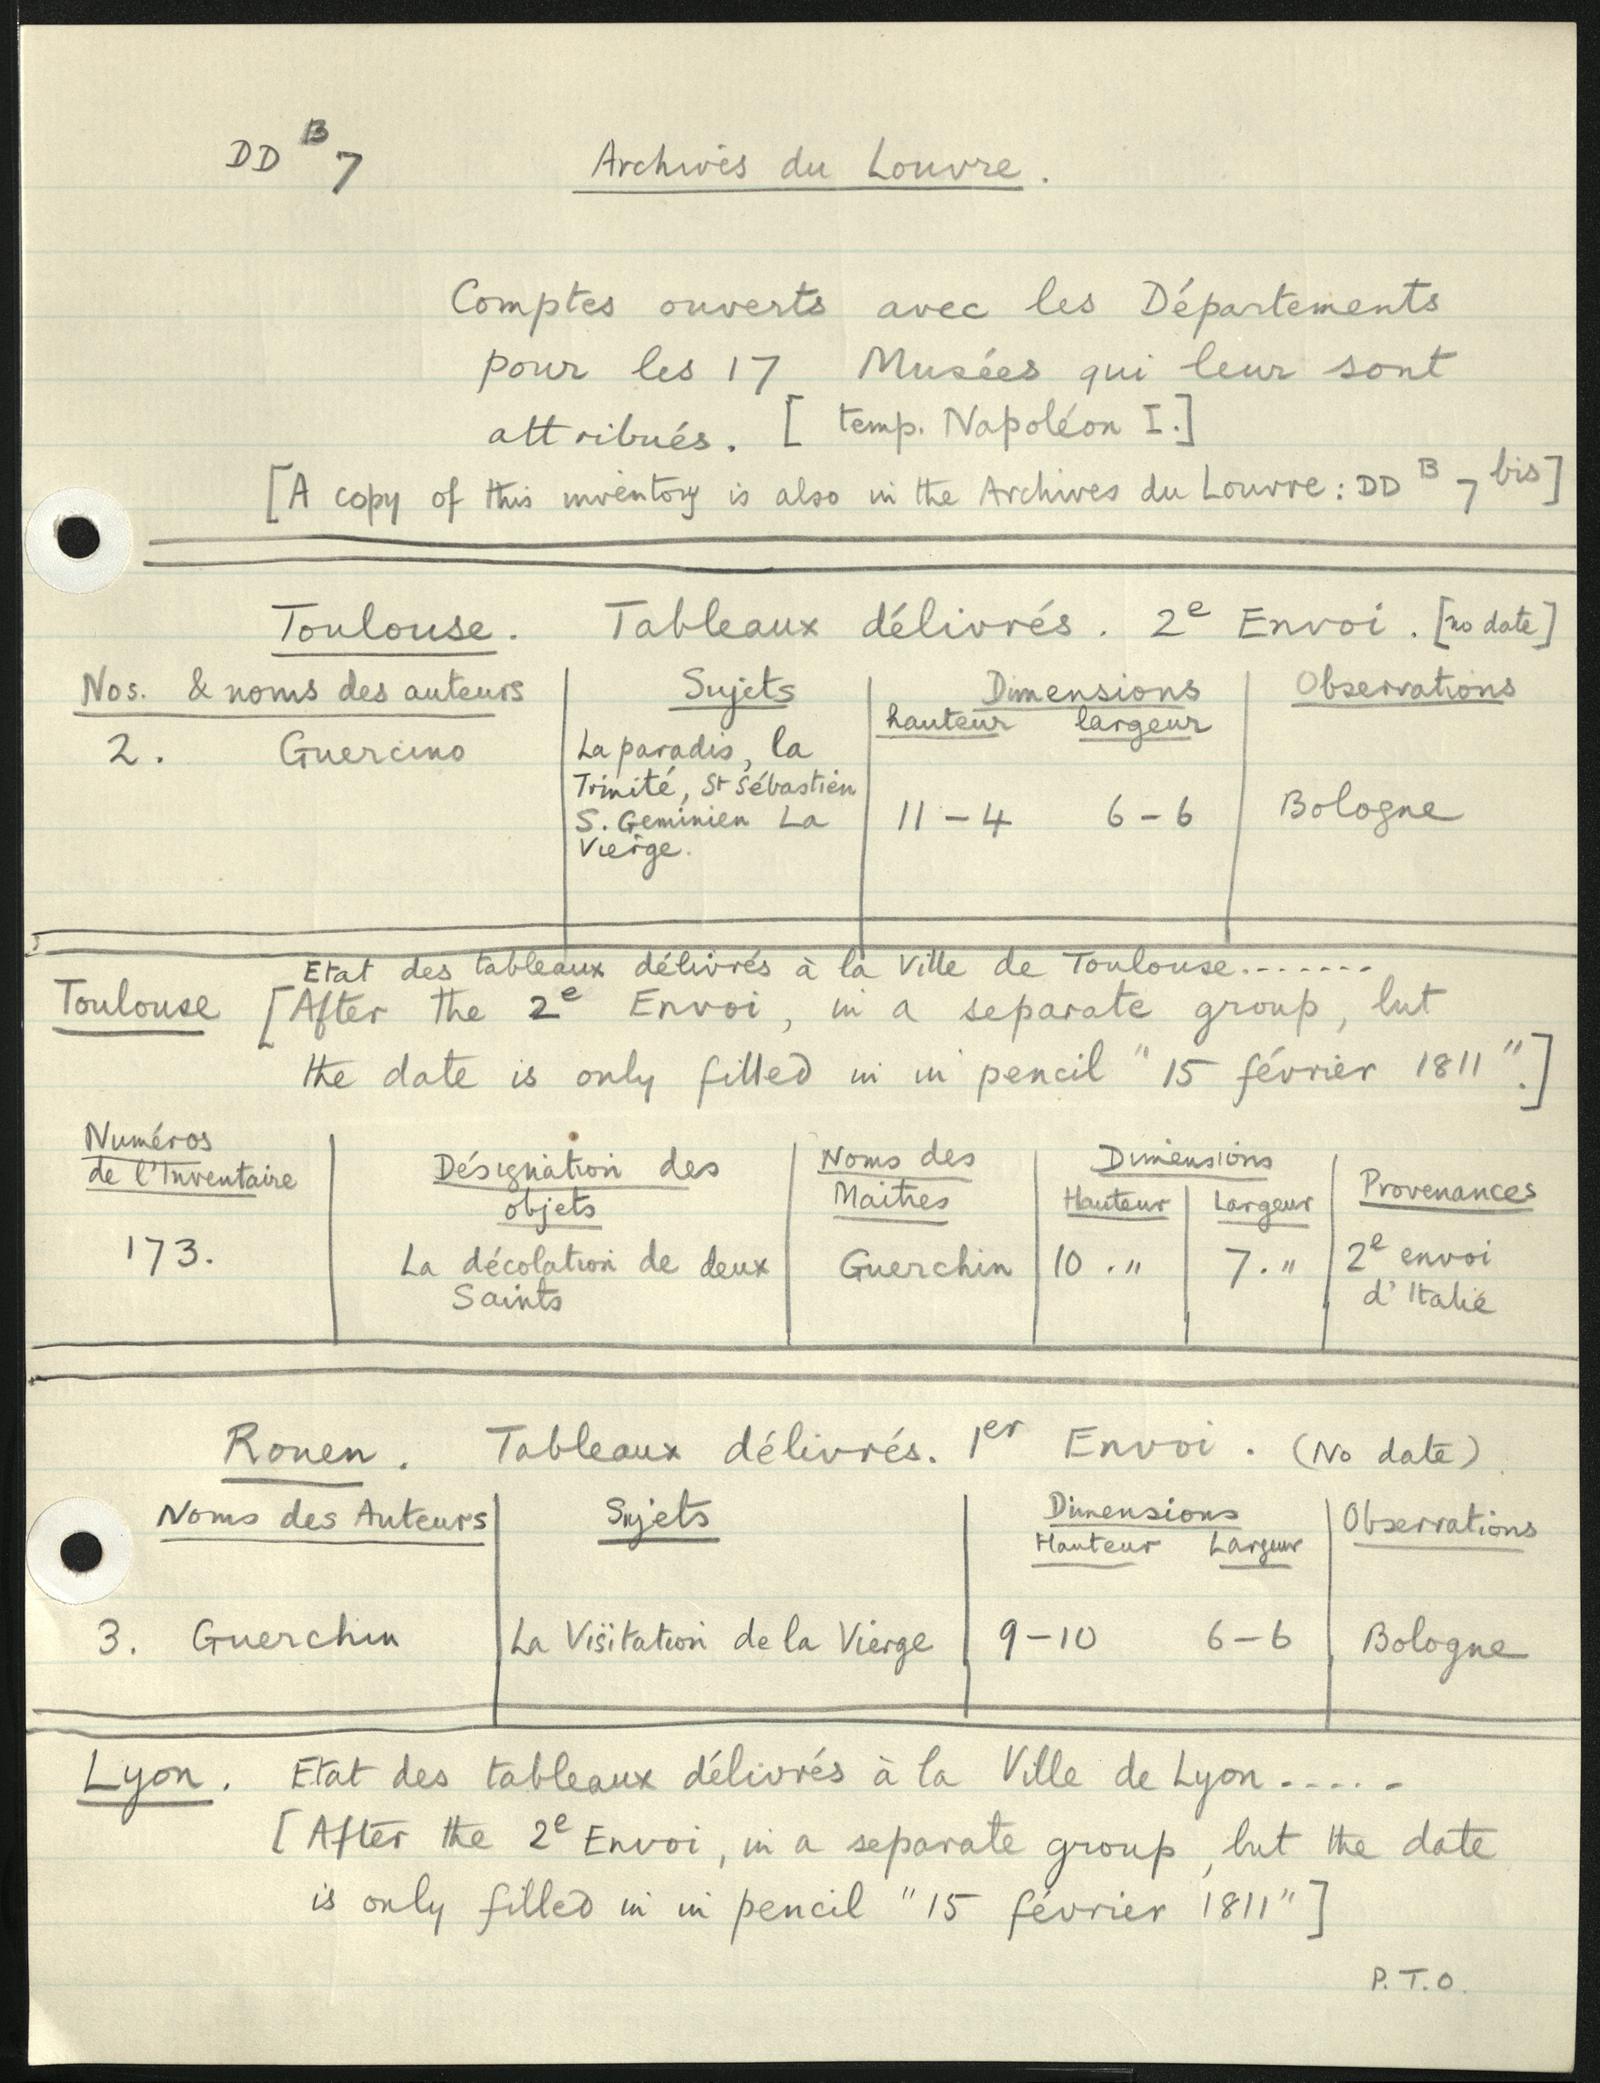 DD B 7 Archives du Louvre.
Comptes ouverts avec les Départements
pour les 17 Musées qui leur sont
attribués. [temp. Napoléon I.]
[A copy of this inventory is also in the Archives du Louvre: DD B 7 bis]
Toulouse. Tableaux délivrés. 2e Envoi. [no date]
Nos. & noms des auteurs Sujets Dimensions Observations
hauteur largeur
2. Guercino La paradis, la
Trinité, St Sébastien
S. Geminien La 11-4 6-6 Bologne
Vierge.
Etat des tableaux délivrés à la Ville de Toulouse.......
Toulouse [After the 2e Envoi, in a separate group, but
the date is only filled in in pencil "15 février 1811".]
Numéros
de l'Inventaire Désignation des Noms des Dimensions Provenances
objets Maitres Hauteur Largeur
173. La décolation de deux Guerchin 10 . " 7 . " 2e envoi
Saints d'Italie
Rouen. Tableaux délivrés. 1er Envoi. (No date)
Noms des Auteurs Sujets Dimensions Observations
Hauteur Largeur
3. Guerchin La Visitation de la Vierge 9-10 6-6 Bologne
Lyon. Etat des tableaux délivrés à la Ville de Lyon.....
[After the 2e Envoi, in a separate group, but the date
is only filled in in pencil "15 février 1811"]
P.T.O.